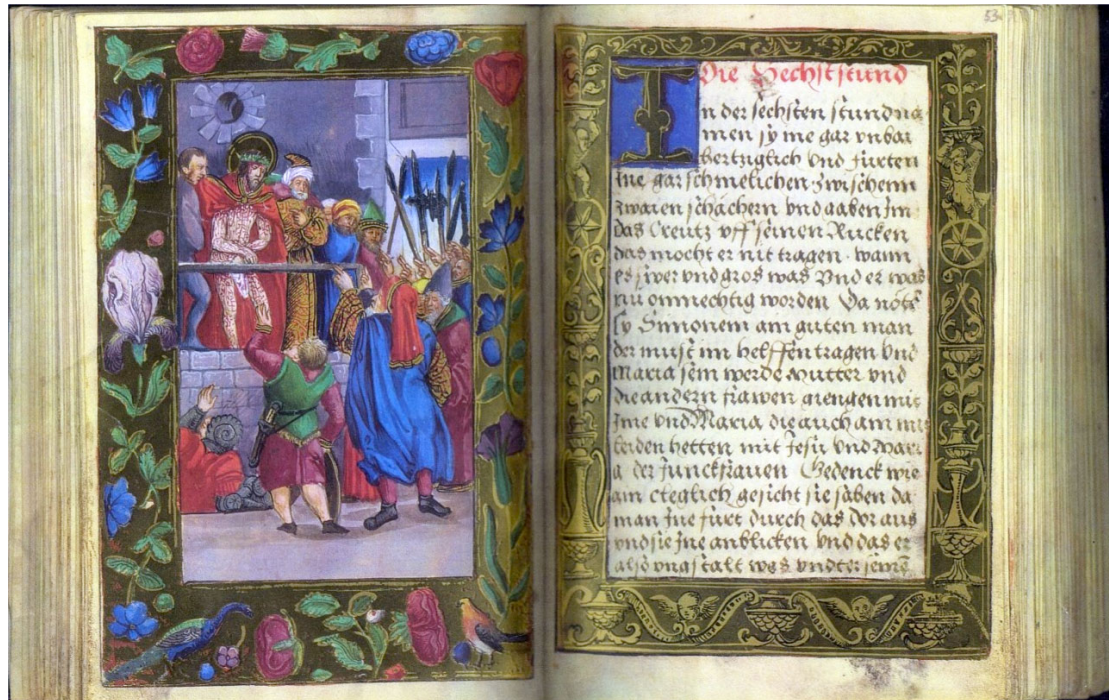 53
Die Sechst stund
In der sechsten stund na
men sy ine gar vnbar
hertziglich vnd fürten
Ine gar schmelichen zwischenn
zwaien schächern vnd gaben Im
das Creutz vff seinen Rucken
das mocht er nit tragen wann
es swer vnd gros was Vnd er was
nu onmechtig worden Da nöt
sy Simonem am guten man
der must im helffen tragen Vnd
Maria sein werde Mutter vnd
die andern frawen giengen mit
Ime vnd Maria die auch am mit
leiden hetten mit Jesu Vnd Mari
a der Junckfrauen Gedenck wie
am cleglich gesicht sie sahen da
man Ine furt durch das dor aus
vnd sie Ine anblicken Vnd das er
also vngstalt was vndter seine